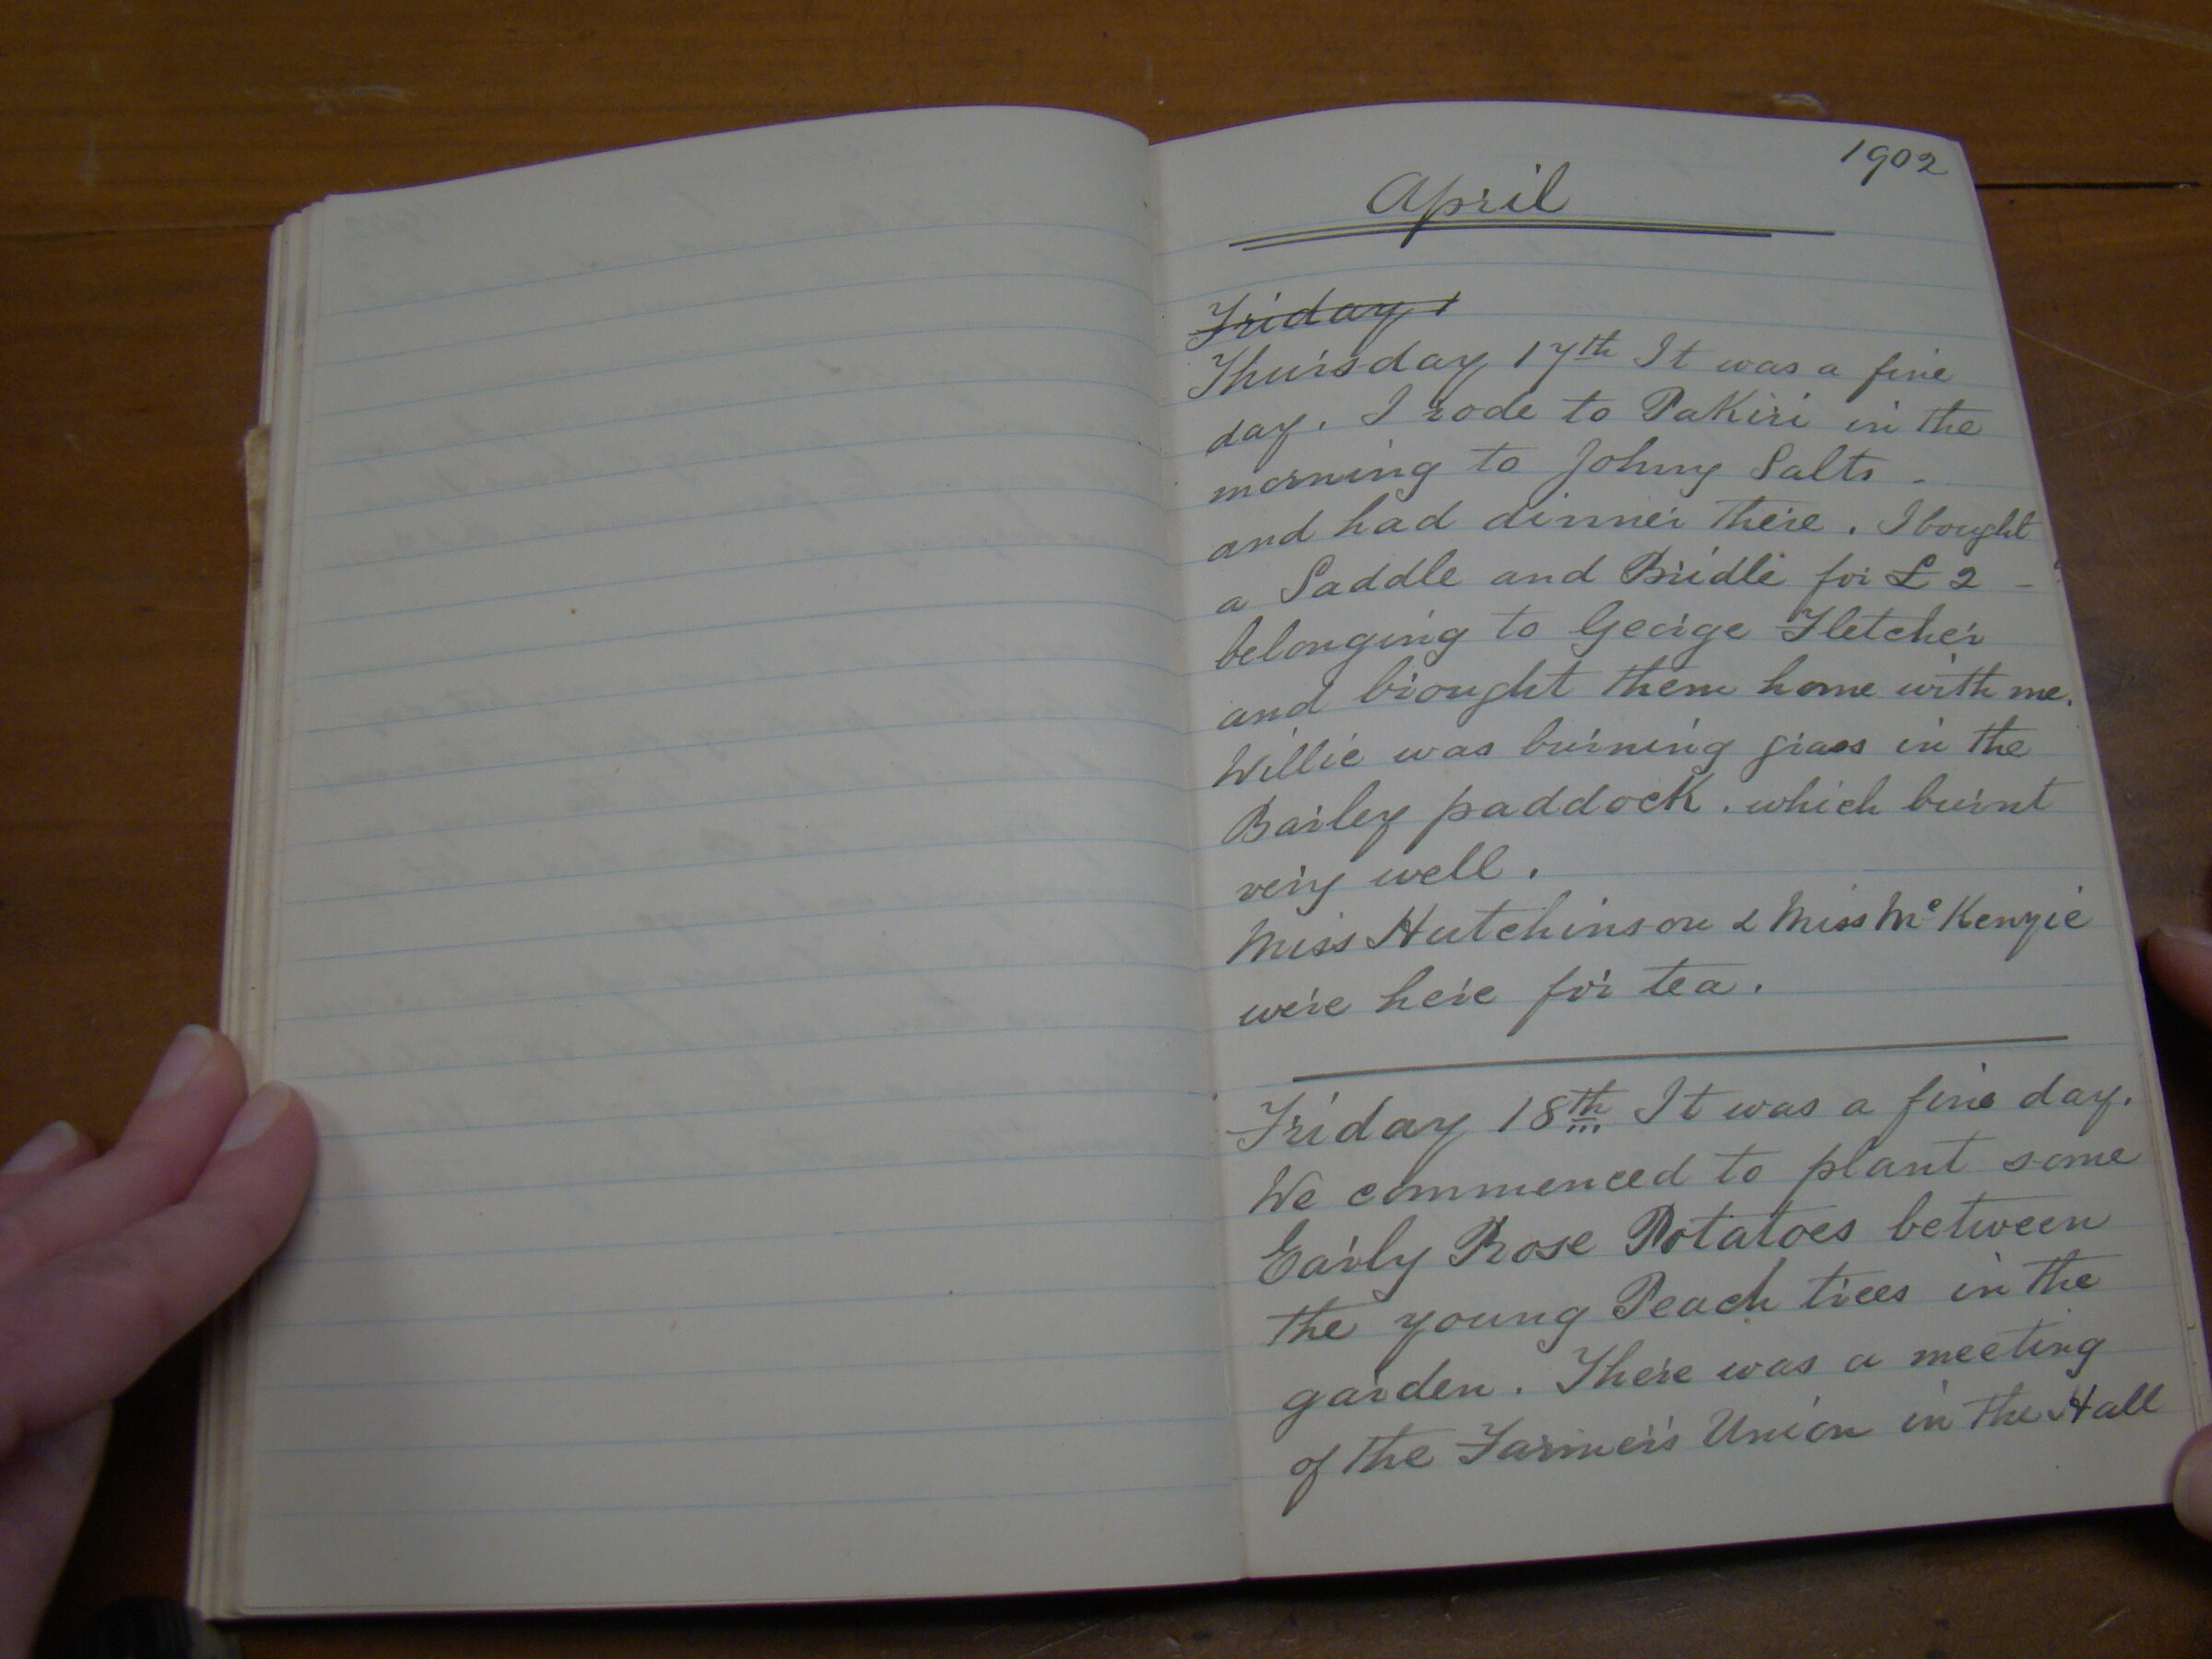 1902
April
Friday 1
Thursday 17th It was a fine
day. I rode to Pakiri in the
morning to Johny Salts -
and had dinner there. I bought
a Saddle and Bridle for £2 -
belonging to George Fletcher
and brought them home with me.
Willie was burning grass in the
Barley paddock. which burnt
very well.
Miss Hutchinson & Miss McKenzie
were here for tea.
Friday 18th It was a fine day.
We commenced to plant some
Early Rose Potatoes between
the young Peach trees in the
garden. There was a meeting
of the Farmer's Union in the Hall